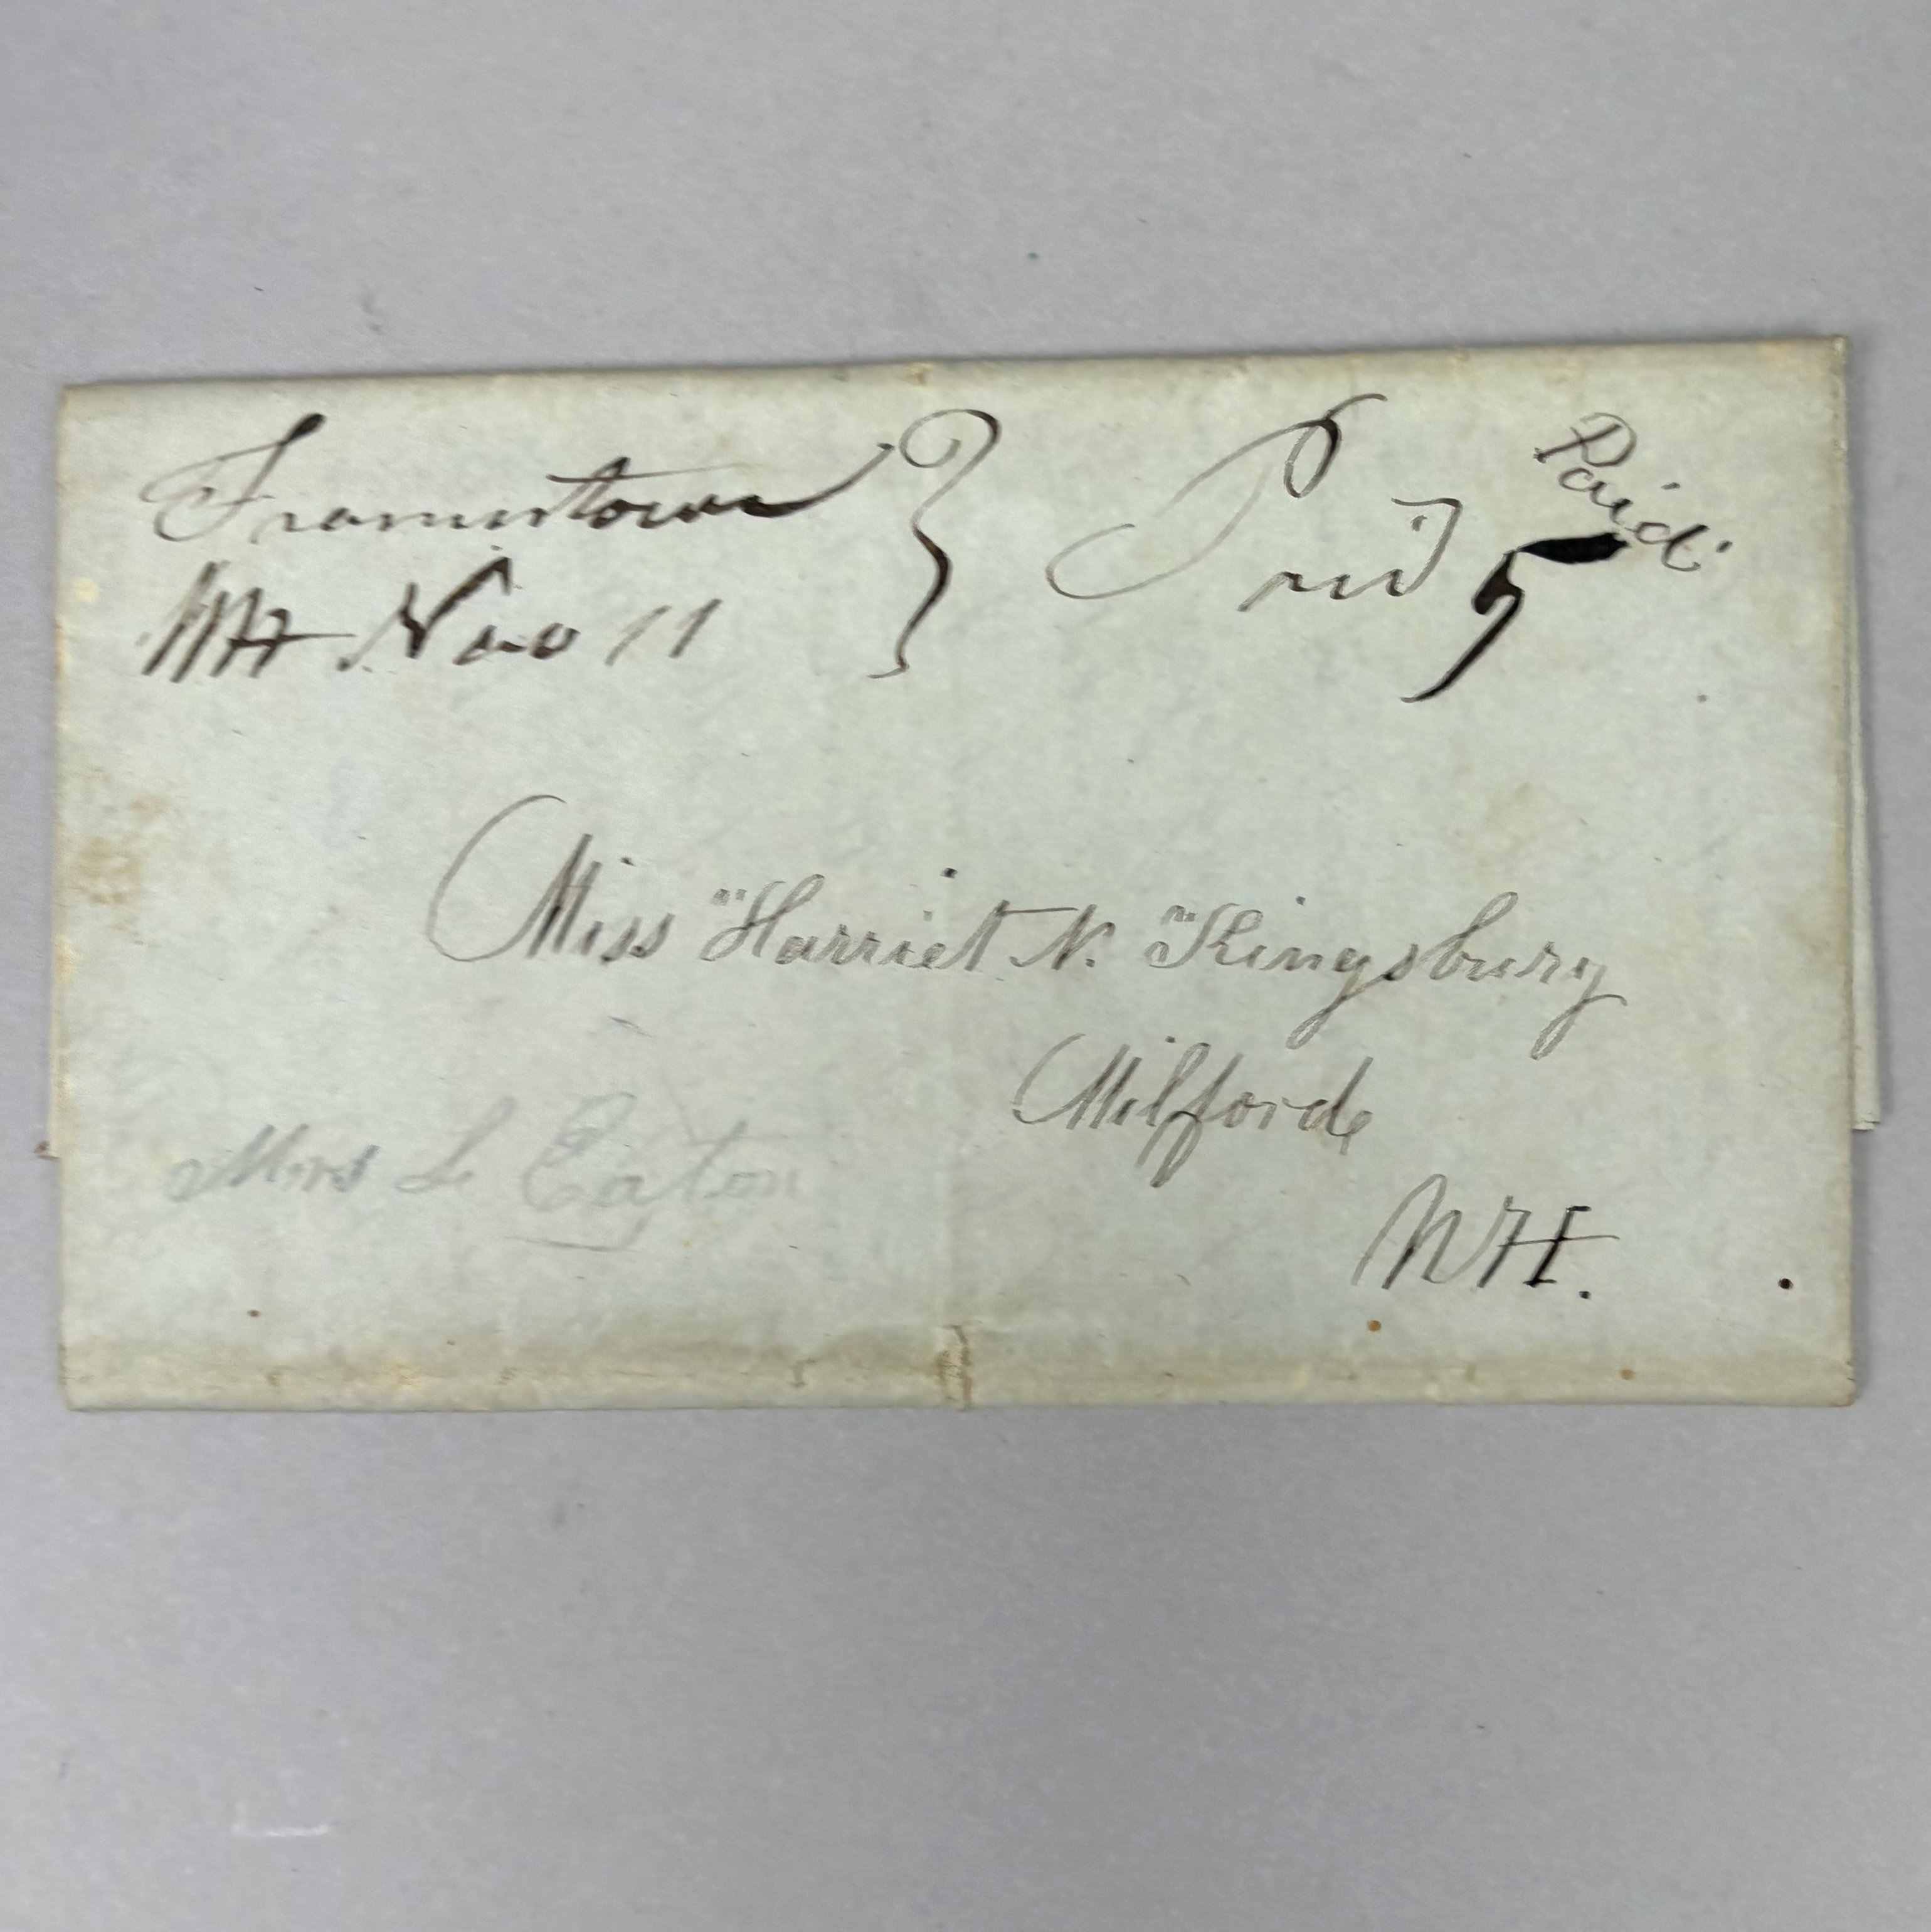 Francestown
NH Nov 11
Paid
Paid 5
Miss Harriet N. Kingsbury
Milford
N H.
Mrs L Eaton